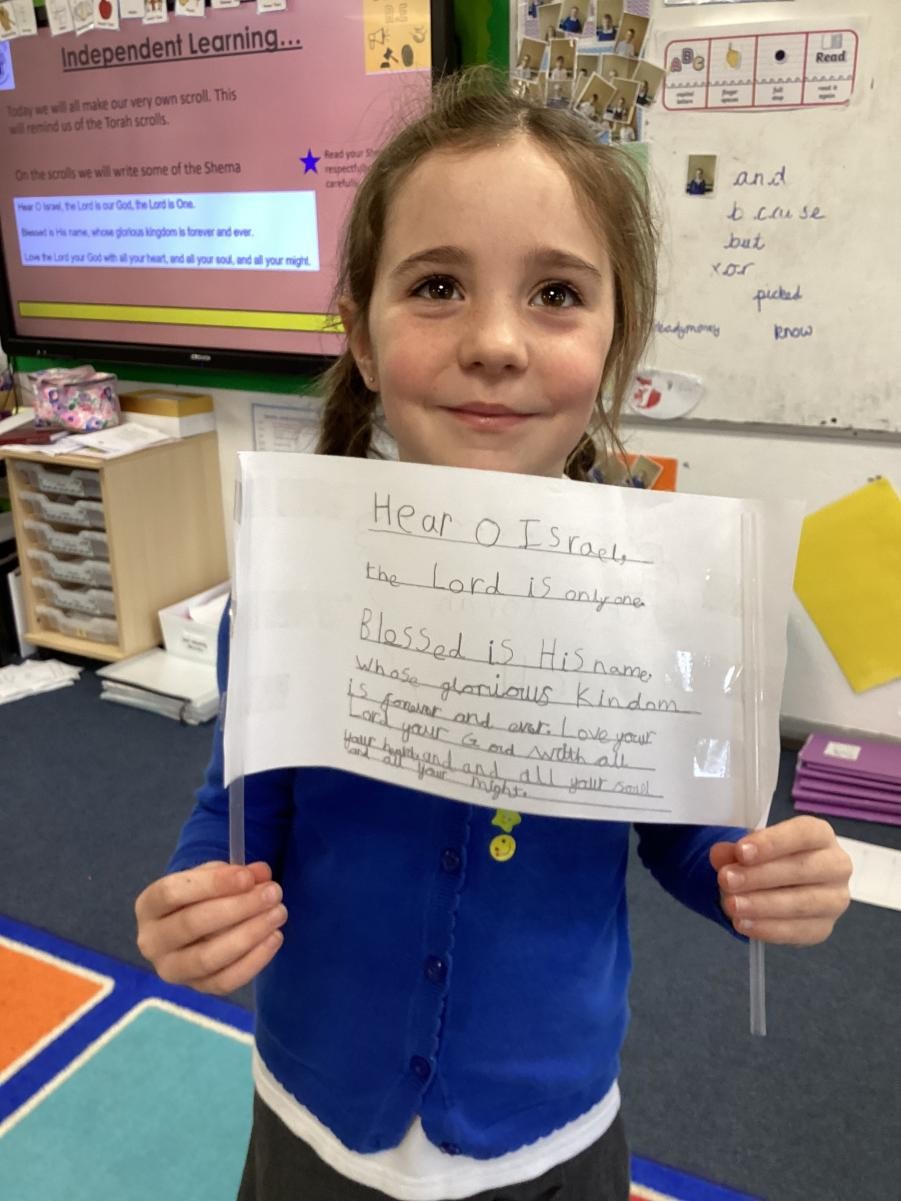 Independent Learning...
Today we will all make our very own scroll. This
will remind us of the Torah scrolls.
On the scrolls we will write some of the Shema
Read your
respectfully
carefully
Hear O Israel, the Lord is our God, the Lord is One.
Blessed is His name, whose glorious kingdom is forever and ever.
Love the Lord your God with all your heart, and all your soul, and all your might.
ABC
Read
capital letters
finger spaces
full stop
read it again
and
but
picked
know
Hear O Israel,
the Lord is only one.
Blessed is His name,
whose glorious Kindom
is forever and ever. Love your
Lord your God with all
your and and all your soull
and all your might.